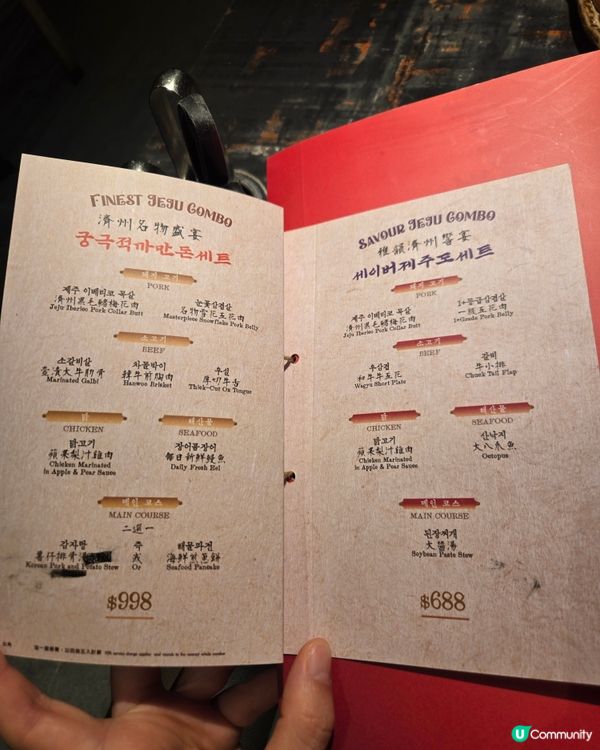 FINEST JEJU COMBO
濟州名物盛宴
궁극적까만돈세트
돼지 고기
PORK
제주 이베리코 목살
濟州黑毛豬梅花肉
Jeju Iberico Pork Collar Butt
눈꽃삼겹살
名物雪花五花肉
Masterpiece Snowflake Pork Belly
소고기
BEEF
소갈비살
壺漬大牛肋骨
Marinated Galbi
차돌박이
韓牛前胸肉
Hanwoo Brisket
우설
厚切牛舌
Thick-Cut Ox Tongue
닭
CHICKEN
닭고기
蘋果梨汁雞肉
Chicken Marinated
in Apple & Pear Sauce
해산물
SEAFOOD
장어곰장어
每日新鮮鰻魚
Daily Fresh Eel
메인 코스
MAIN COURSE
二選一
감자탕
薯仔排骨湯
Korean Pork and Potato Stew
즉
或
Or
해물파전
海鮮煎蔥餅
Seafood Pancake
$998
設加一服務費，以四捨五入計算 10% service charge applies and rounds to the nearest whole number
SAVOUR JEJU COMBO
穗韻濟州饗宴
세이버제주포세트
돼지 고기
PORK
제주 이베리코 목살
濟州黑毛豬梅花肉
Jeju Iberico Pork Collar Butt
1+등급삼겹살
一級五花肉
1+Grade Pork Belly
소고기
BEEF
우삼겹
和牛牛五花
Wagyu Short Plate
갈비
牛小排
Chuck Tail Flap
닭
CHICKEN
닭고기
蘋果梨汁雞肉
Chicken Marinated
in Apple & Pear Sauce
해산물
SEAFOOD
산낙지
大八爪魚
Octopus
메인 코스
MAIN COURSE
된장찌개
大醬湯
Soybean Paste Stew
$688
U Community